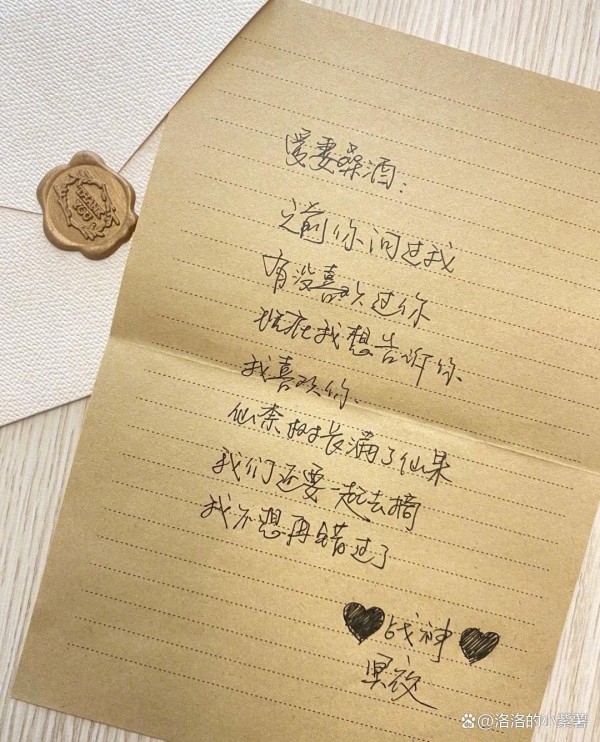 爱妻桑酒：
之前你问过我
有没喜欢过你
现在我想告诉你、
我喜欢你、
仙柰树长满了仙果
我们还要一起去摘
我不想再错过了
战神
冥夜
THANK
YOU
@洛洛的小紫薯